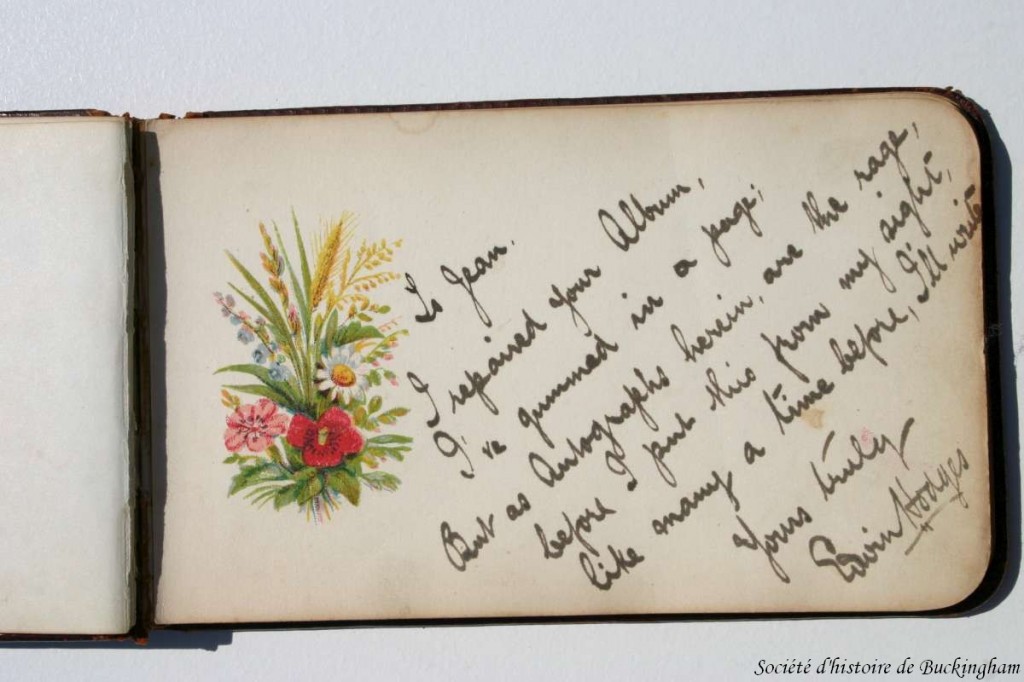 To Jean.
I repaired your Album,
I've gummed in a page;
But as Autographs herein, are the rage,
before I put this from my sight,
like many a time before, I'll write
Yours truly
Edwin Hodges
Société d'histoire de Buckingham